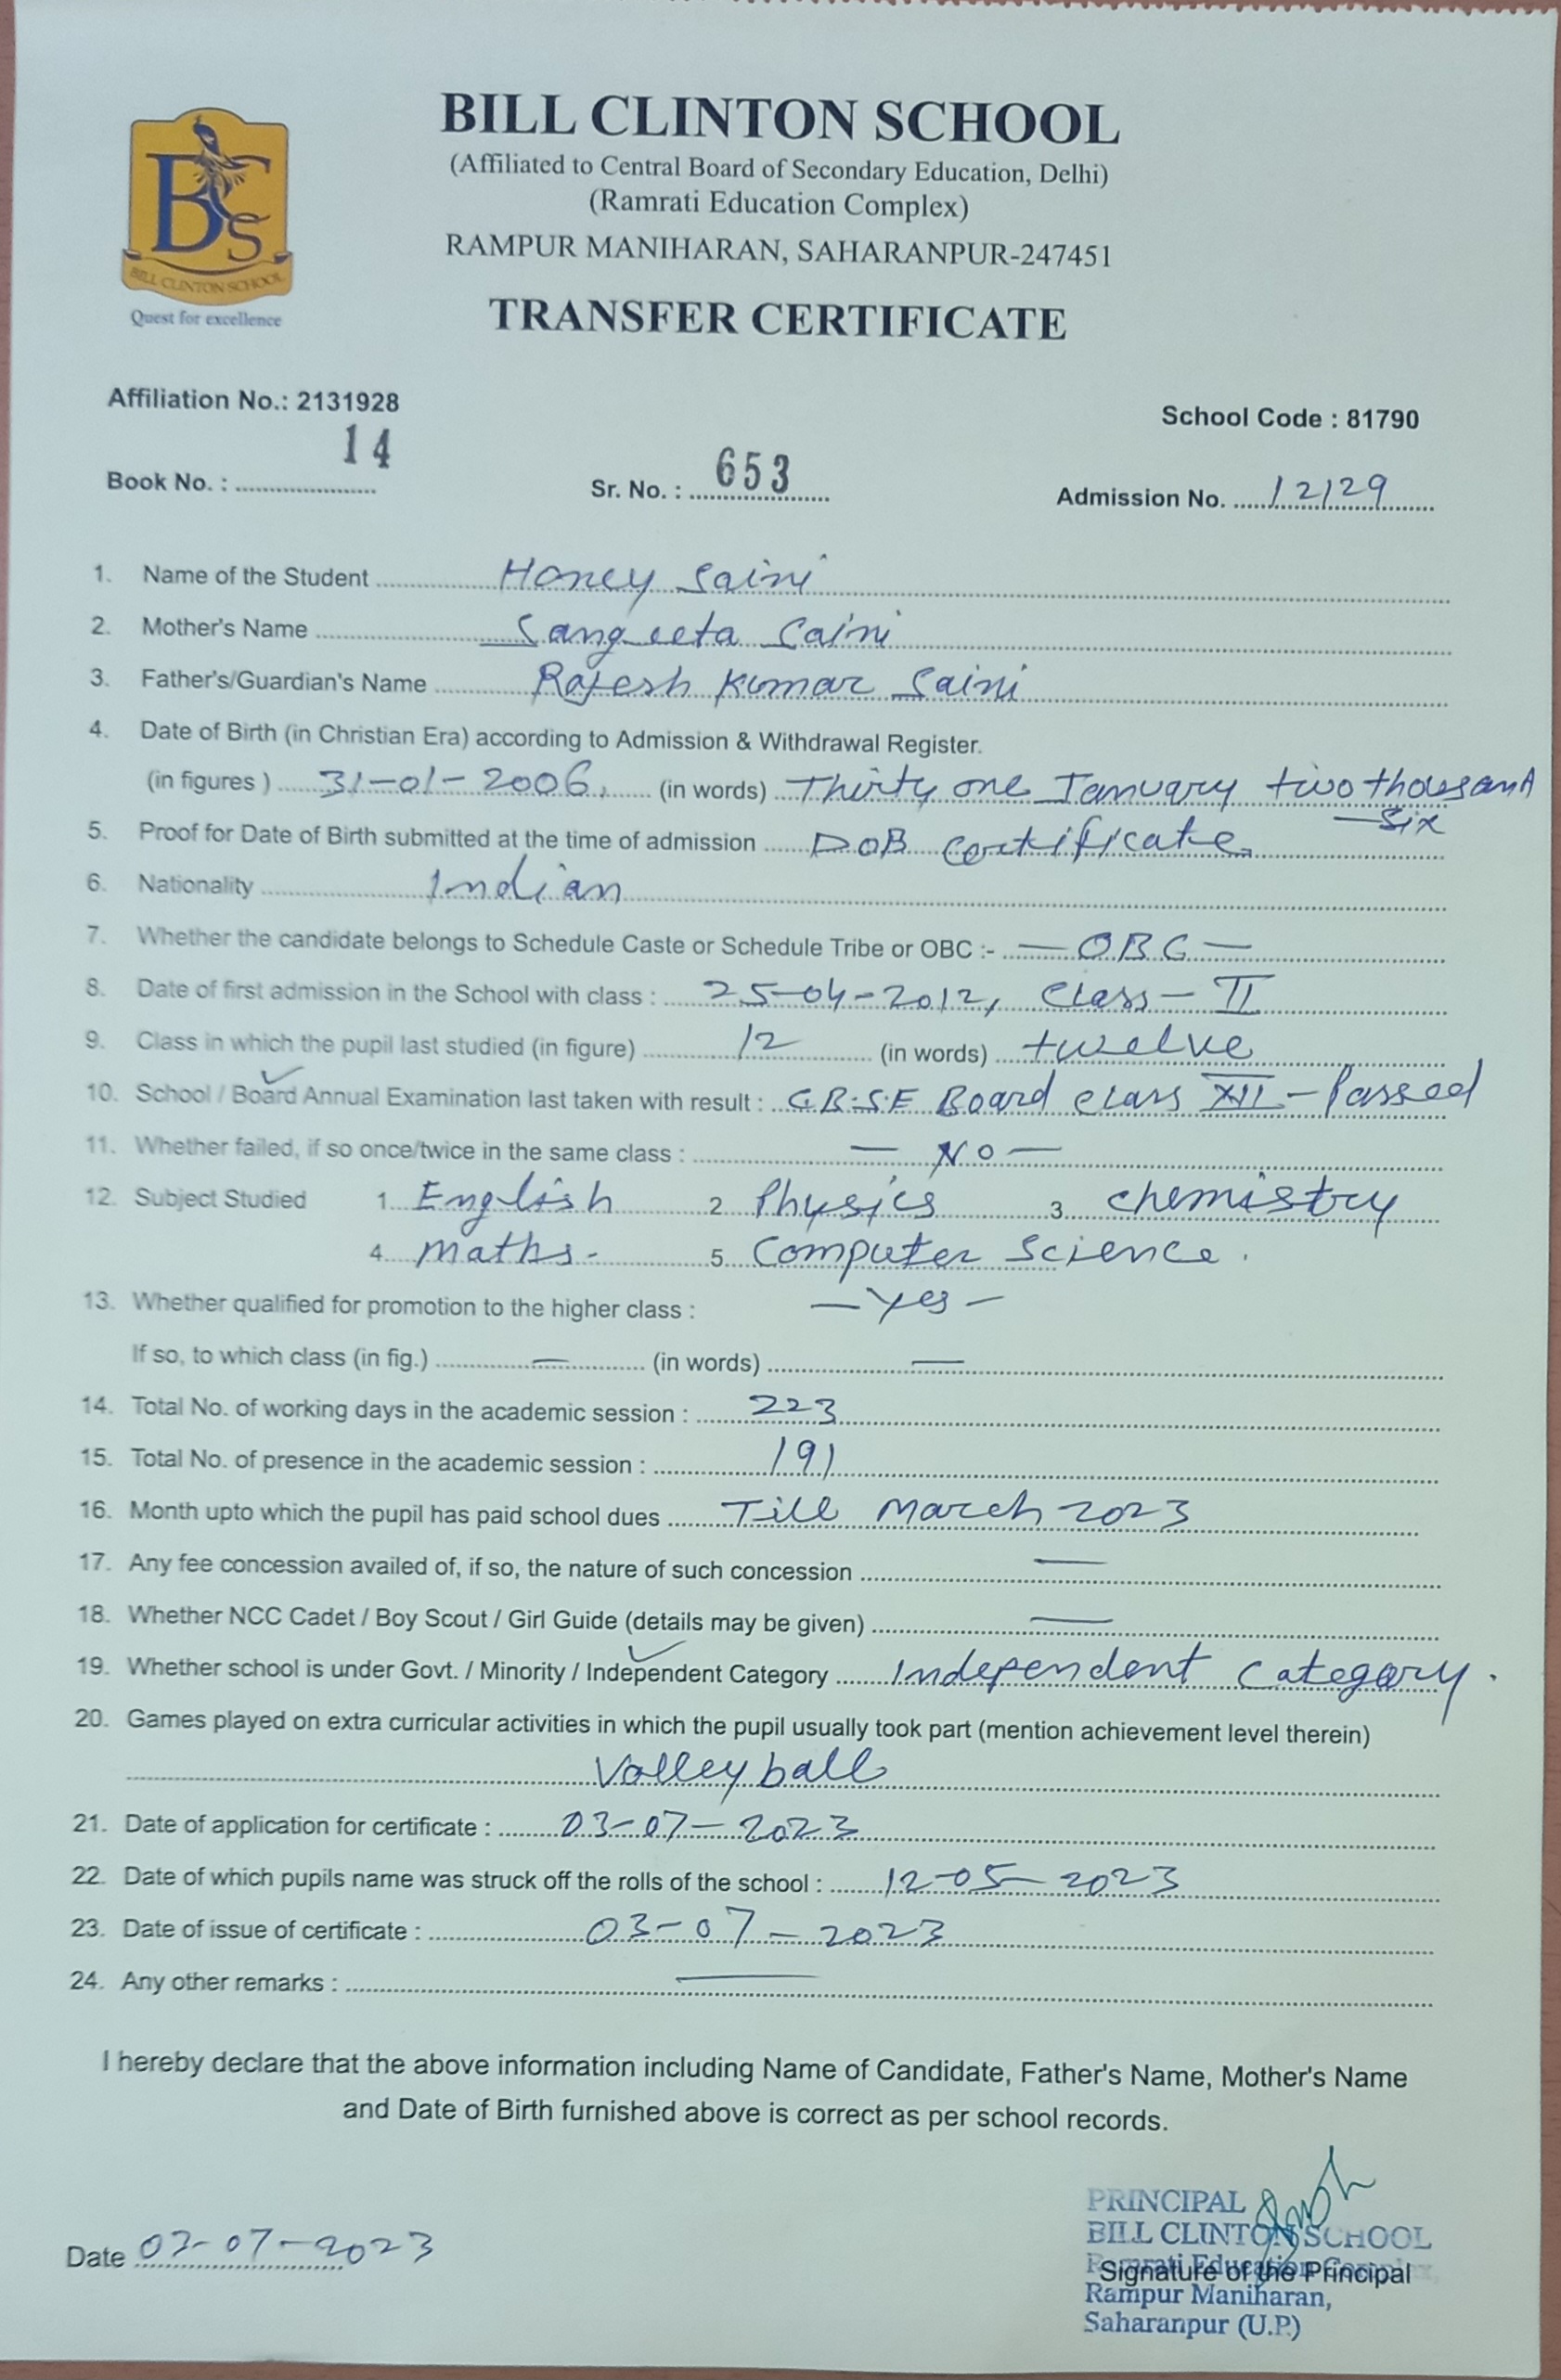 BILL CLINTON SCHOOL
(Affiliated to Central Board of Secondary Education, Delhi)
(Ramrati Education Complex)
RAMPUR MANIHARAN, SAHARANPUR-247451
BCS
BILL CLINTON SCHOOL
Quest for excellence
TRANSFER CERTIFICATE
Affiliation No.: 2131928
School Code : 81790
Book No. : 14 Sr. No. : 653 Admission No. 12129
1. Name of the Student Honey Saini
2. Mother's Name Sangeeta Saini
3. Father's/Guardian's Name Rajesh Kumar Saini
4. Date of Birth (in Christian Era) according to Admission & Withdrawal Register.
(in figures ) 31-01-2006, (in words) Thirty one January two thousand
-six
5. Proof for Date of Birth submitted at the time of admission DOB certificate
6. Nationality Indian
7. Whether the candidate belongs to Schedule Caste or Schedule Tribe or OBC :- — OBC —
8. Date of first admission in the School with class : 25-04-2012, Class - II
9. Class in which the pupil last studied (in figure) 12 (in words) twelve
10. School / Board Annual Examination last taken with result : C.B.S.E Board class XII - Passed
11. Whether failed, if so once/twice in the same class : — No —
12. Subject Studied 1. English 2. Physics 3. chemistry
4. Maths - 5. Computer Science .
13. Whether qualified for promotion to the higher class : - Yes -
If so, to which class (in fig.) — (in words) —
14. Total No. of working days in the academic session : 223
15. Total No. of presence in the academic session : 191
16. Month upto which the pupil has paid school dues Till March 2023
17. Any fee concession availed of, if so, the nature of such concession —
18. Whether NCC Cadet / Boy Scout / Girl Guide (details may be given) —
19. Whether school is under Govt. / Minority / Independent Category Independent Category .
20. Games played on extra curricular activities in which the pupil usually took part (mention achievement level therein)
Volleyball
21. Date of application for certificate : 03-07-2023
22. Date of which pupils name was struck off the rolls of the school : 12-05-2023
23. Date of issue of certificate : 03-07-2023
24. Any other remarks : —
I hereby declare that the above information including Name of Candidate, Father's Name, Mother's Name
and Date of Birth furnished above is correct as per school records.
Date 03-07-2023
PRINCIPAL
BILL CLINTON SCHOOL
Ramrati Education Complex,
Signature of the Principal
Rampur Maniharan,
Saharanpur (U.P.)